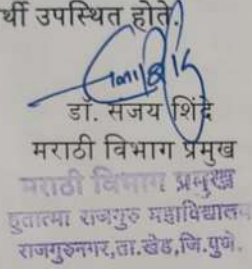 र्थी उपस्थित होते.
डॉ. संजय शिंदे
मराठी विभाग प्रमुख
मराठी विभाग प्रमुख
हुतात्मा राजगुरु महाविद्यालय
राजगुरुनगर,ता.खेड,जि.पुणे.